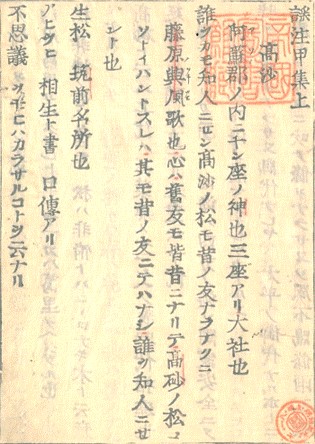 謡注甲集上
高沙
何蕭郡ノ内ニ千ン座ノ神也三座アリ大社也
誰ヲカモ知人ニセン高沙ノ松モ昔ノ友ナラナクニ
藤原興風歌也心ハ舊友モ皆昔ニナリテ高砂ノ松ヲ
ソトイハントスレハ其モ昔ノ友ニテハナシ誰ヲ知人ニセ
ント也
生松 筑前名所也
アヒヲヒ 相生ト書 口傳アリ
不思議 ヲモヒハカラサルコトヲ云ナリ